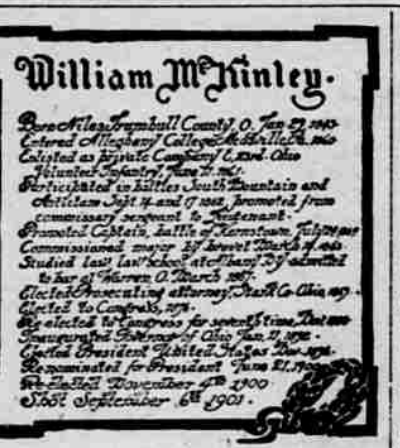 William McKinley.
Born Niles, Trumbull County, O. Jan 29, 1843.
Entered Allegheny College, Meadville, Pa. 1860
Enlisted as private Company E, 23rd. Ohio
Volunteer Infantry, June 11, 1861.
Participated in battles South Mountain and
Antietam Sept 14 and 17 1862, promoted from
commissary sergeant to lieutenant.
Promoted Captain, battle of Kernstown, July
Commissioned major by brevet March
Studied law, law school at Albany, N.Y. admitted
to bar at Warren O. March 1867.
Elected Prosecuting attorney, Stark Co. Ohio,
Elected to Congress, 1876.
Re elected to Congress for seventh time,
Inaugurated Governor of Ohio Jan. 11, 1892.
Elected President United States Nov. 1896.
Renominated for President June 21, 1900
Re-elected November 1900
Shot September 6th 1901.